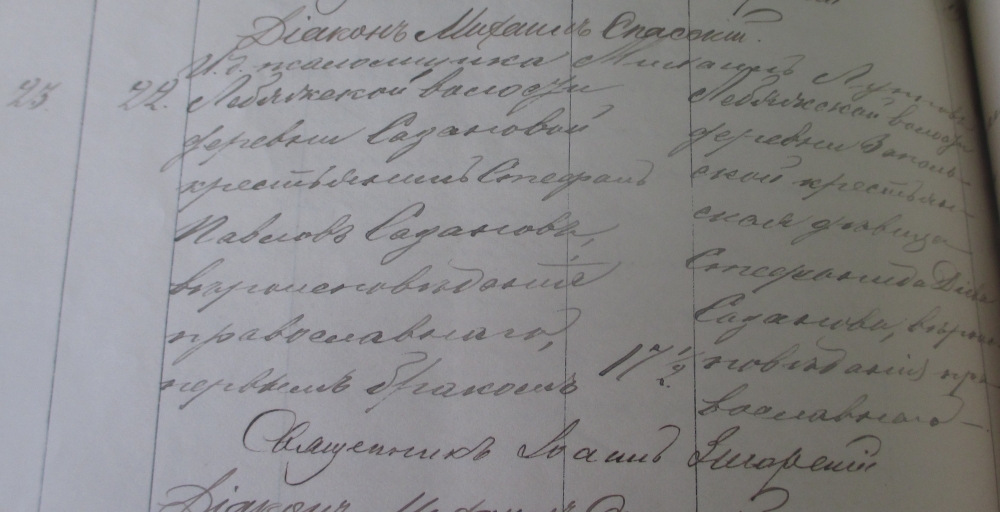 Діаконъ Михаилъ Спасскій.
И. д. псаломщика Михаилъ
23 22. Лебяжской волости
деревни Сазановой
крестьянинъ Стефанъ
Павловъ Сазановъ,
вѣроисповѣданія
православнаго,
первымъ бракомъ 17 1/2
Лебяжской волости
деревни Заполь-
ской крестьян-
ская дѣвица
Стефанида
Сазанова, вѣроис
повѣданія пра-
вославнаго.
Священникъ Іоаннъ
Діаконъ